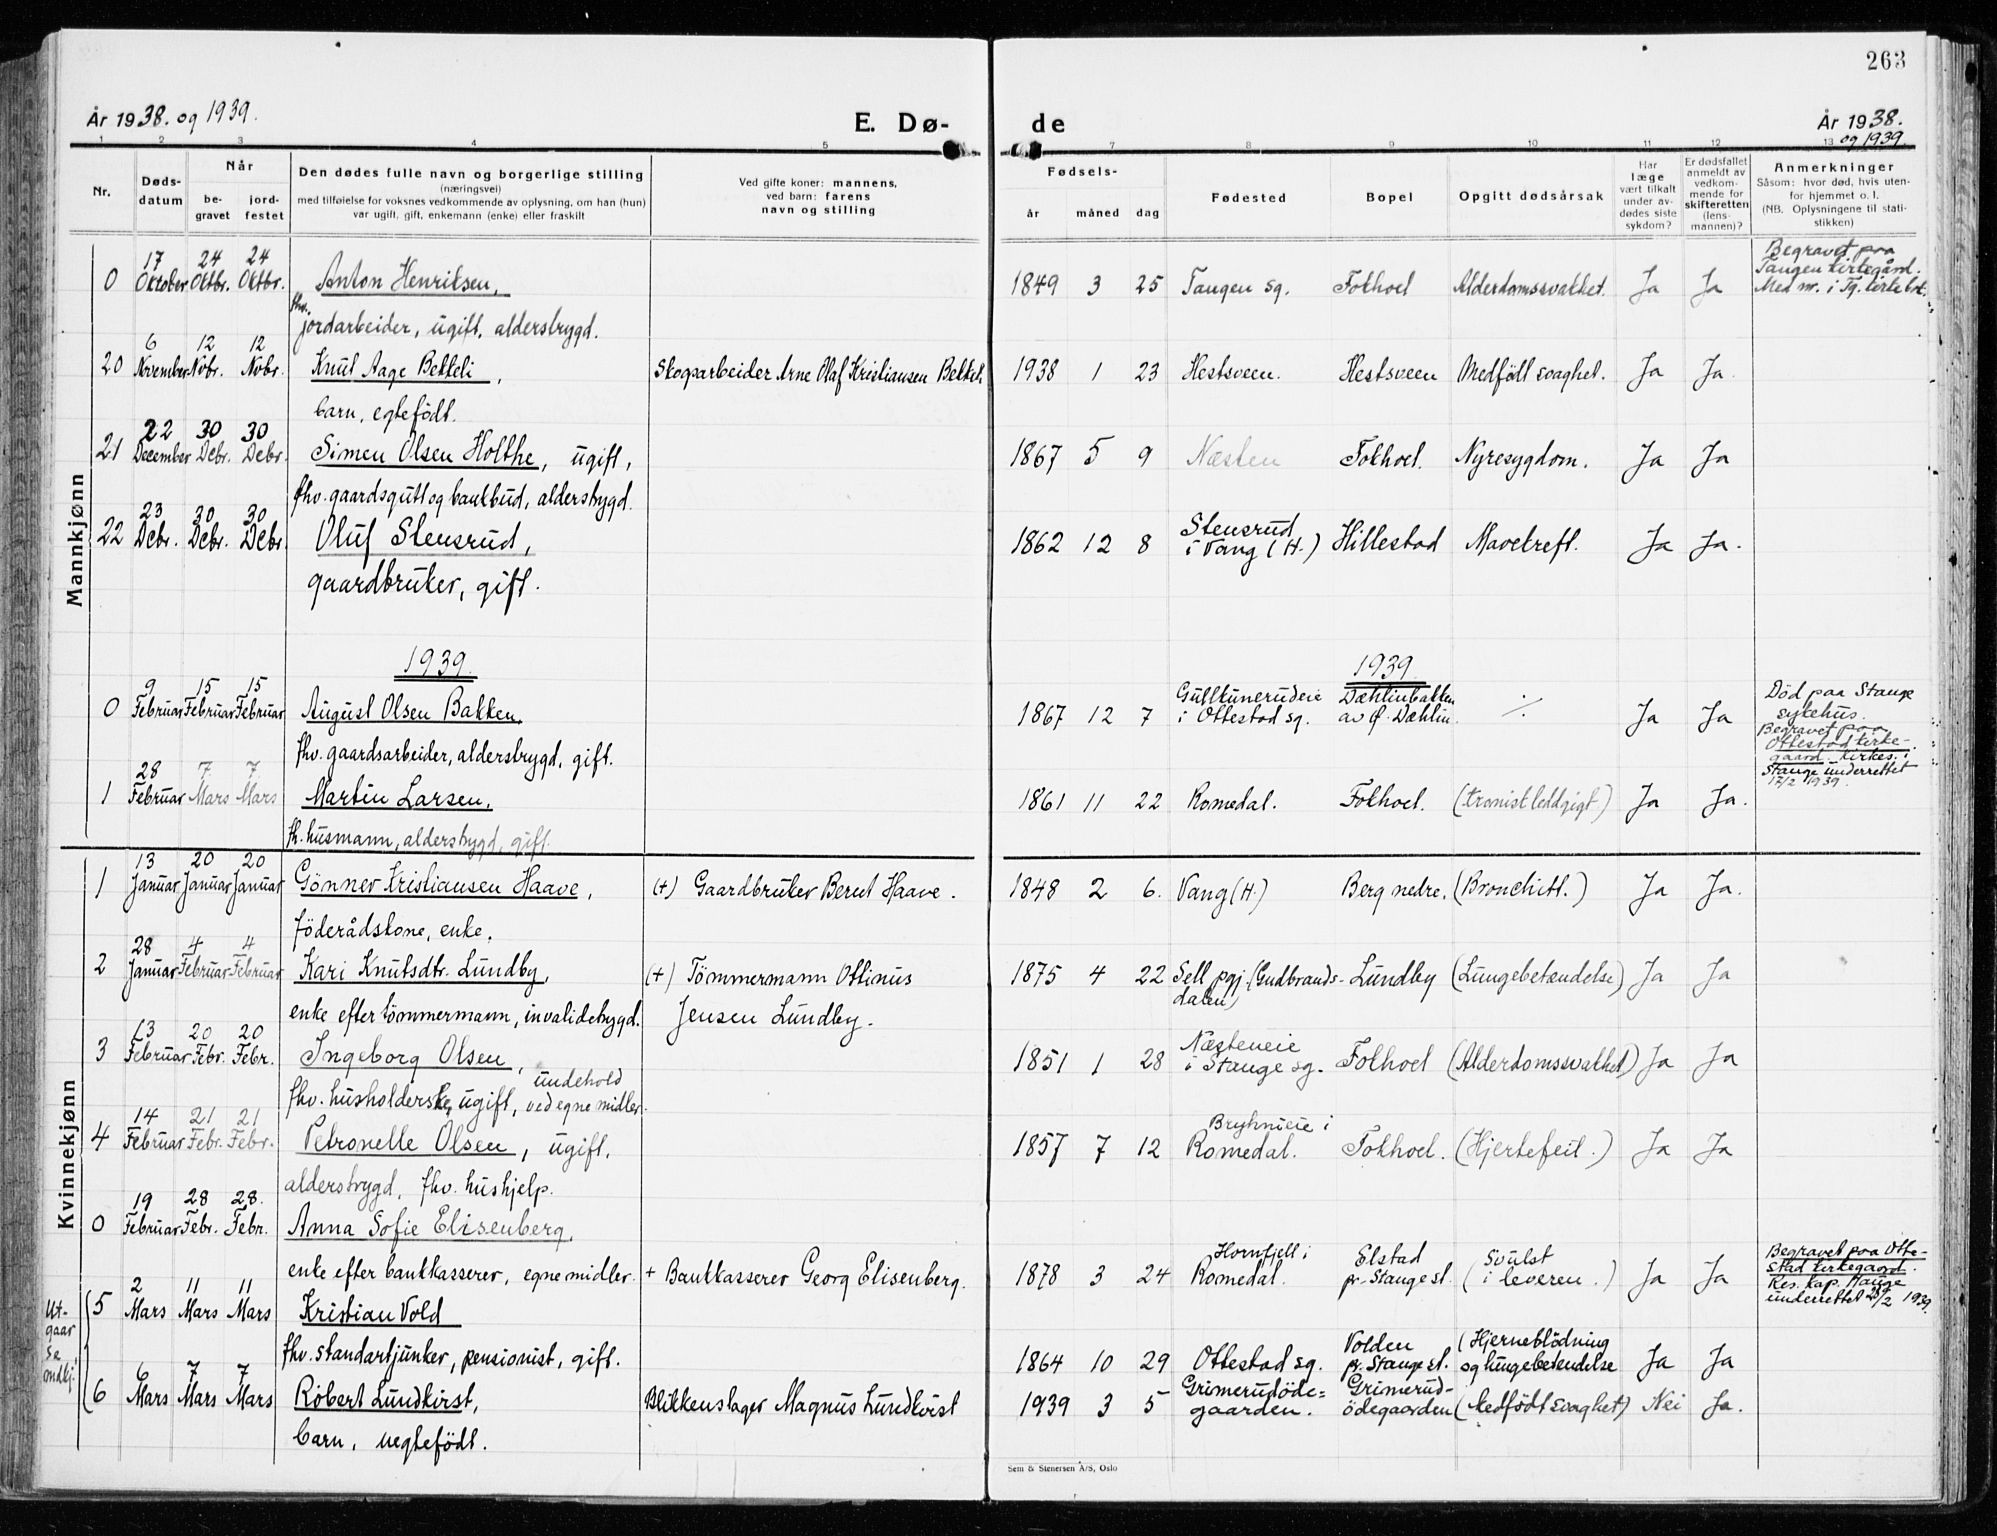 263
År 1938. og 1939.
E. Dø-
de
År 1938.
og 1939.
1 2 3 4 5 7 8 9 10 11 12 13
Nr.
Døds-
datum
Når
be-
gravet
jord-
festet
Den dødes fulle navn og borgerlige stilling
(næringsvei)
med tilføielse for voksnes vedkommende av oplysning, om han (hun)
var ugift, gift, enkemann (enke) eller fraskilt
Ved gifte koner: mannens,
ved barn: farens
navn og stilling
Fødsels-
år måned dag
Fødested
Bopel
Opgitt dødsårsak
Har
læge
vært tilkalt
under av-
dødes siste
sykdom?
Er dødsfallet
anmeldt av
vedkom-
mende for
skifteretten
(lens-
mannen)?
Anmerkninger
Såsom: hvor død, hvis uten-
for hjemmet o. l.
(NB. Oplysningene til stati-
stikken)
Mannkjønn
17 24 24
0 Oktober Oktbr. Oktbr. Anton Henriksen, 1849 3 25 Tangen sg. Fokhoel Alderdomssvakhet. Ja Ja
Begravet paa
Tangen kirkegård.
Med nr. i Tg. kirkebok.
fhv.
jordarbeider, ugift, alderstrygd.
6 12 12
20 November Nobr. Nobr. Knut Aage Bekkeli, Skogsarbeider Arne Olaf Kristiansen Bekkeli 1938 1 23 Hestsveen. Hestsveen Medfödt svaghet. Ja Ja.
barn, egtefödt.
22 30 30
21 December Debr. Debr. Simen Olsen Holthe, ugift, 1867 5 9 Næsten Fokhoel. Nyresygdom. Ja Ja
fhv. gaardsgutt og bankbud, alderstrygd.
23 30 30
22 Debr. Debr. Debr. Oluf Stensrud, 1862 12 8 Stensrud
i Vang (H.) Hillestad Mavekreft. Ja Ja.
gaardbruker, gift.
1939.
1939
9 15 15
0 Februar Februar Februar August Olsen Bakken, 1867 12 7 Gullkunerudeie
i Ottestad sg. Dæhlinbakken
av Ö. Dæhlin. ./. Ja Ja
Död paa Stange
sykehus.
Begravet paa
Ottestad kirke-
gaard. Kirkes. i
Stange underrettet
17/2 1939.
fhv. gaardsarbeider, alderstrygd, gift.
28 7 7
1 Februar Mars Mars Martin Larsen, 1861 11 22 Romedal. Fokhoel. (kronisk leddgigt) Ja Ja.
fh. husmann, alderstrygd, gift.
Kvinnekjønn
13 20 20
1 Januar Januar Januar Gönner Kristiansen Haave, (+) Gaardbruker Bernt Haave. 1848 2 6. Vang (H.) Berg nedre. (Bronchitt.) Ja Ja.
föderådskone, enke.
28 4 4
2 Januar Februar Februar Kari Knutsdtr. Lundby, (+) Tömmermann Ottinus 1875 4 22 Sell pgj. (Gudbrands-
dalen) Lundby (Lungebetændelse) Ja Ja
enke efter tömmermann, invalidetrygd. Jensen Lundby.
13 20 20
3 Februar Febr. Febr. Ingeborg Olsen, 1851 1 28 Næsteneie
i Stange sg. Fokhoel (Alderdomssvakhet) Ja Ja
fhv. husholderske, ugift, undehold
ved egne midler.
14 21 21
4 Februar Febr. Febr. Petronelle Olsen, ugift, 1857 7 12 Bryhnieie i
Romedal. Fokhoel. (Hjertefeil.) Ja Ja
alderstrygd, fhv. hushjelp.
19 28 28.
0 Februar Febr. Febr. Anna Sofie Elisenberg,
enke efter bankkasserer, egne midler. + Bankkasserer Georg Elisenberg. 1878 3 24 Hornfjell i
Romedal. Elstad
pr. Stange st. (Svulst
i leveren.) Ja Ja
Begravet paa Otte-
stad kirkegaard.
Res. kap. Hauge
underrettet 28/2 1939.
Ut-
gaar
Se
mdkj.
2 11 11
5 Mars Mars Mars Kristian Vold
fhv. standartjunker, pensionist, gift. 1864 10 29 Ottestad sg. Volden
pr. Stange st. (Hjerneblödning
og lungebetendelse Ja Ja
6 7 7
6 Mars Mars Mars Robert Lundkvist, Blikkenslager Magnus Lundkvist 1939 3 5 Grimerudöde=
gaarden. Grimerud-
ödegaarden (Medfödt svaghet) Nei Ja.
barn, uegtefödt.
Sem & Stenersen A/S, Oslo